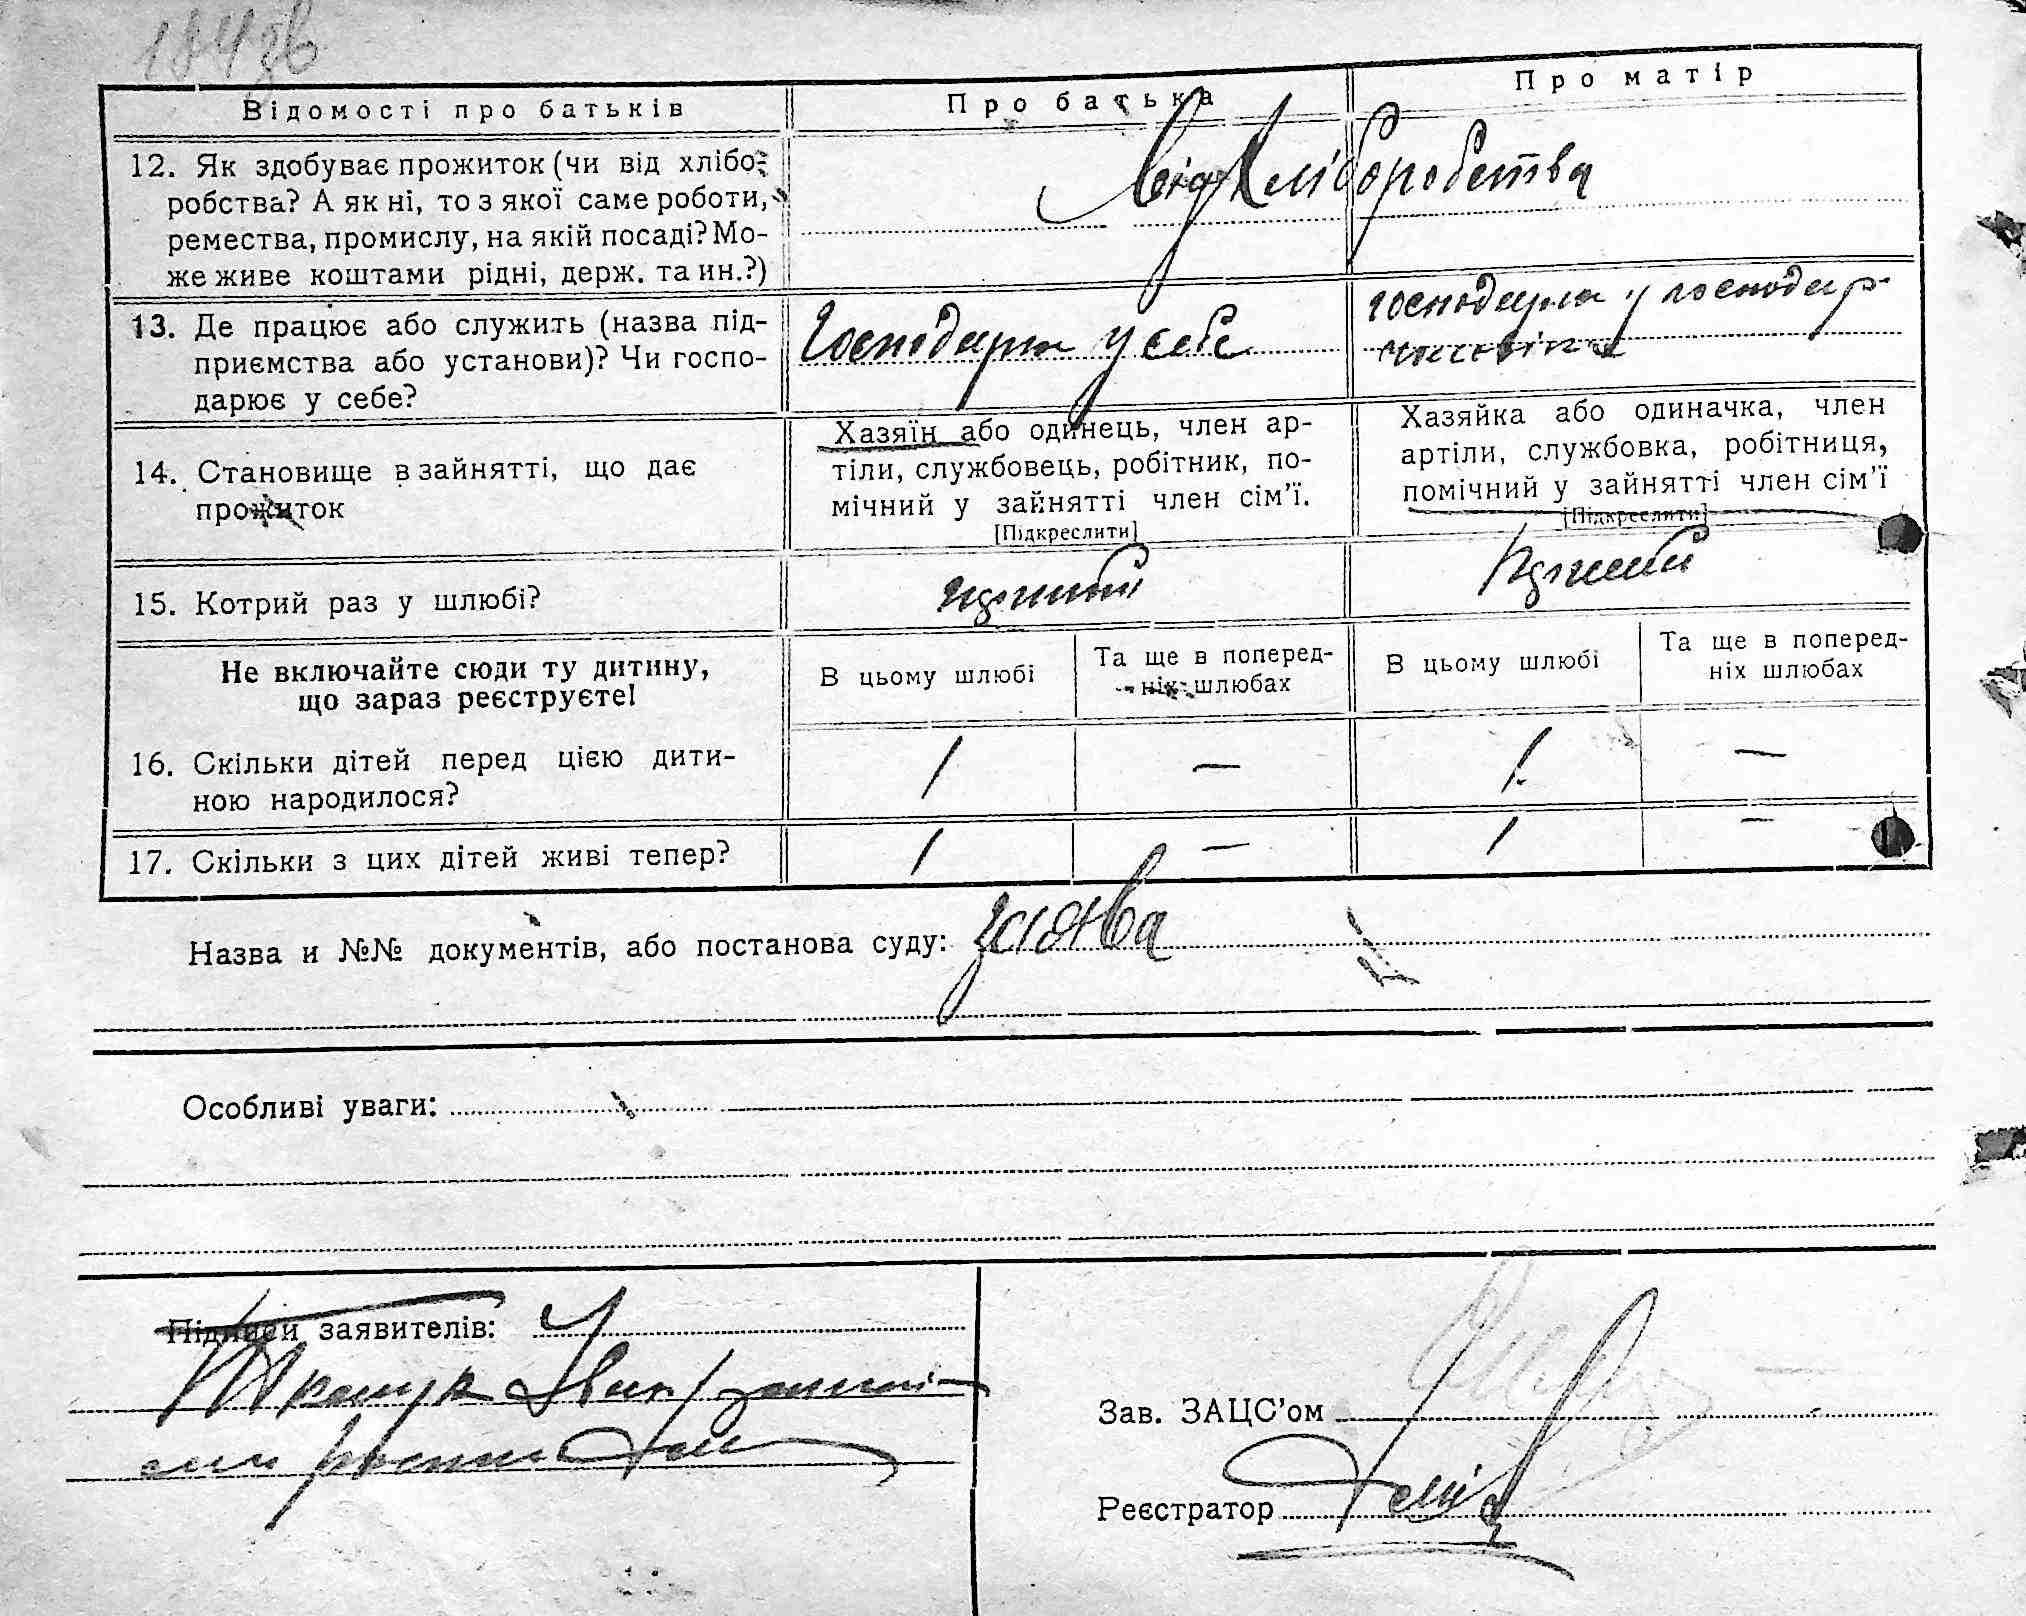 184 зв
Відомості про батьків
Про батька
Про матір
12. Як здобуває прожиток (чи від хлібо-
робства? А як ні, то з якої саме роботи,
ремества, промислу, на якій посаді? Мо-
же живе коштами рідні, держ. та ин.?)
від Хліборобства
13. Де працює або служить (назва під-
приємства або установи)? Чи госпо-
дарює у себе?
Господарює у себе
господарює у господар
чоловіка
14. Становище в зайнятті, що дає
прожиток
Хазяїн або одинець, член ар-
тіли, службовець, робітник, по-
мічний у зайнятті член сім'ї.
[Підкреслити]
Хазяйка або одиначка, член
артіли, службовка, робітниця,
помічний у зайнятті член сім'ї
[Підкреслити]
15. Котрий раз у шлюбі?
Не включайте сюди ту дитину,
що зараз реєструєте!
В цьому шлюбі
Та ще в поперед-
ніх шлюбах
В цьому шлюбі
Та ще в поперед-
ніх шлюбах
16. Скільки дітей перед цією дити-
ною народилося?
1 — 1. —
17. Скільки з цих дітей живі тепер?
1 — 1 —
Назва и №№ документів, або постанова суду: заява
Особливі уваги:
Підписи заявителів:
Зав. ЗАЦС'ом
Реєстратор